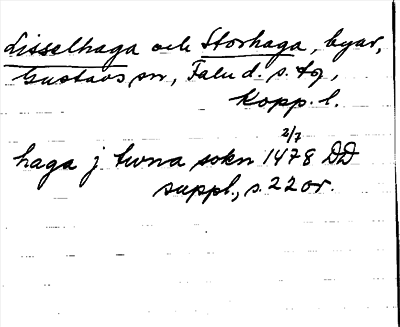 Lisselhaga och Storhaga, byar,
Gustavs sn, Falu d. s. tg,
Kopp. l.
2/7
haga j tuna sokn 1478 DD
suppl., s. 22 or.